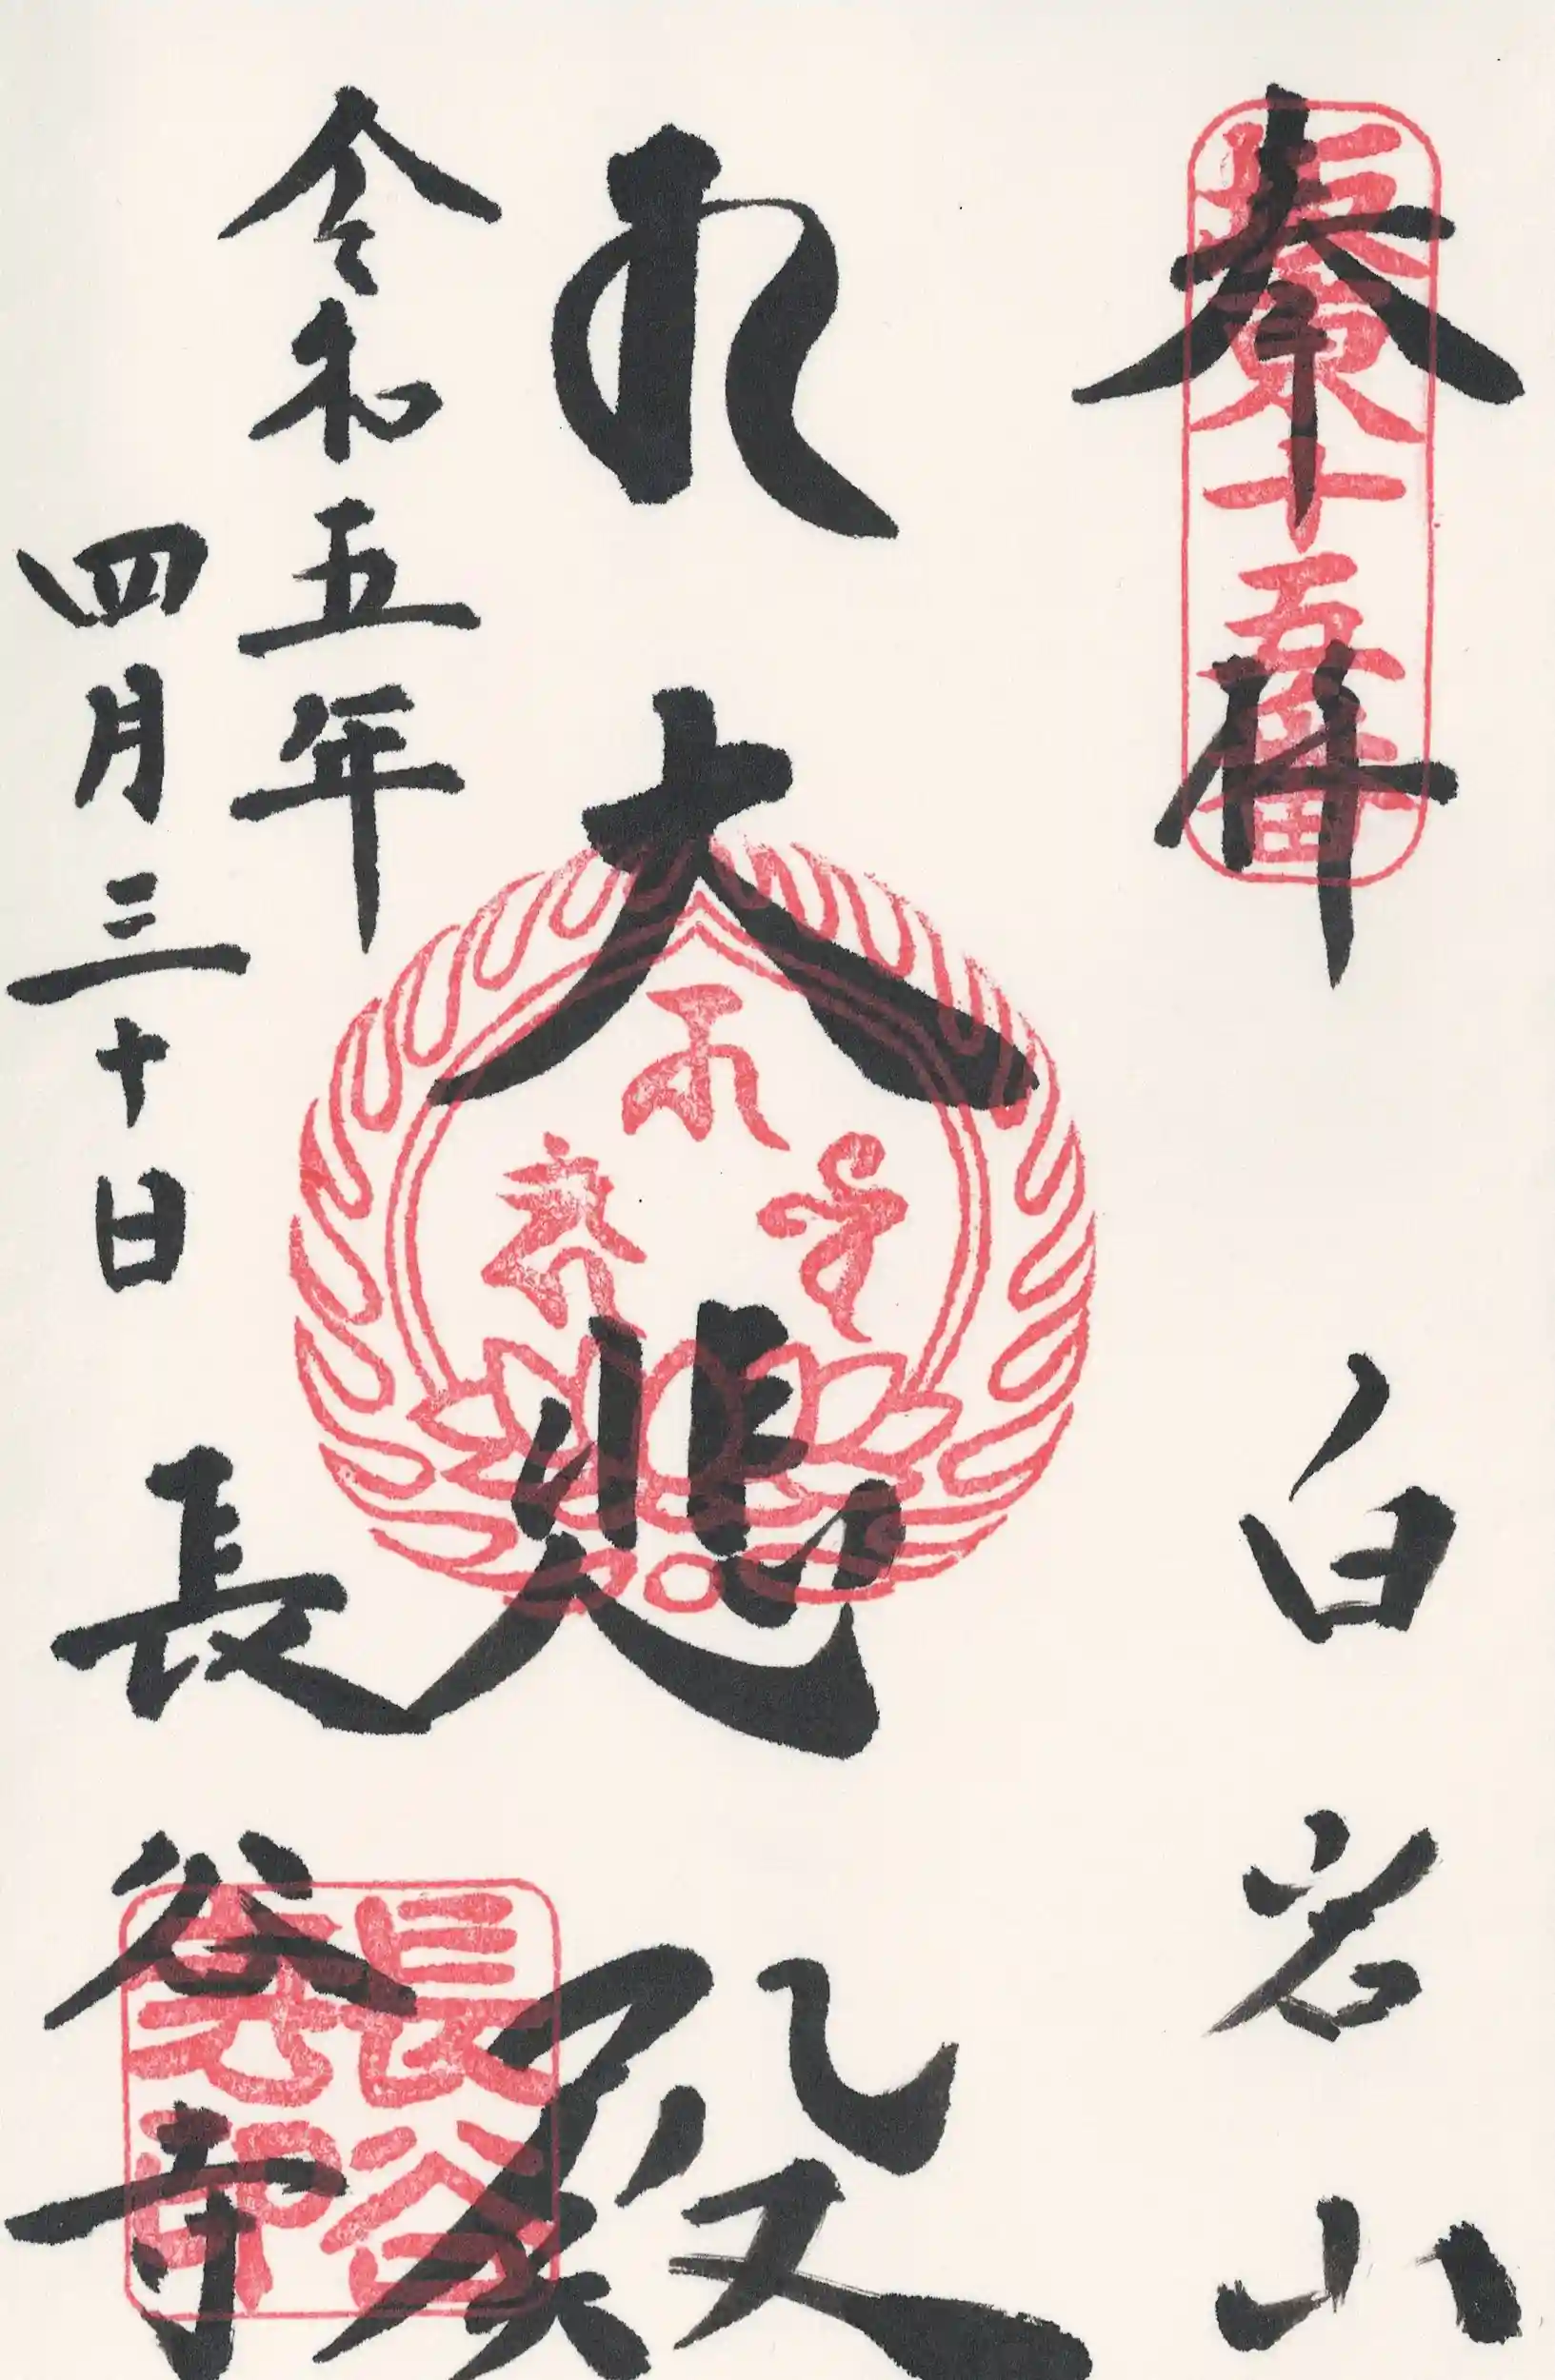 奉拝
白岩山
坂東十五番
大悲殿
令和五年
四月三十日
長谷寺
長谷寺印